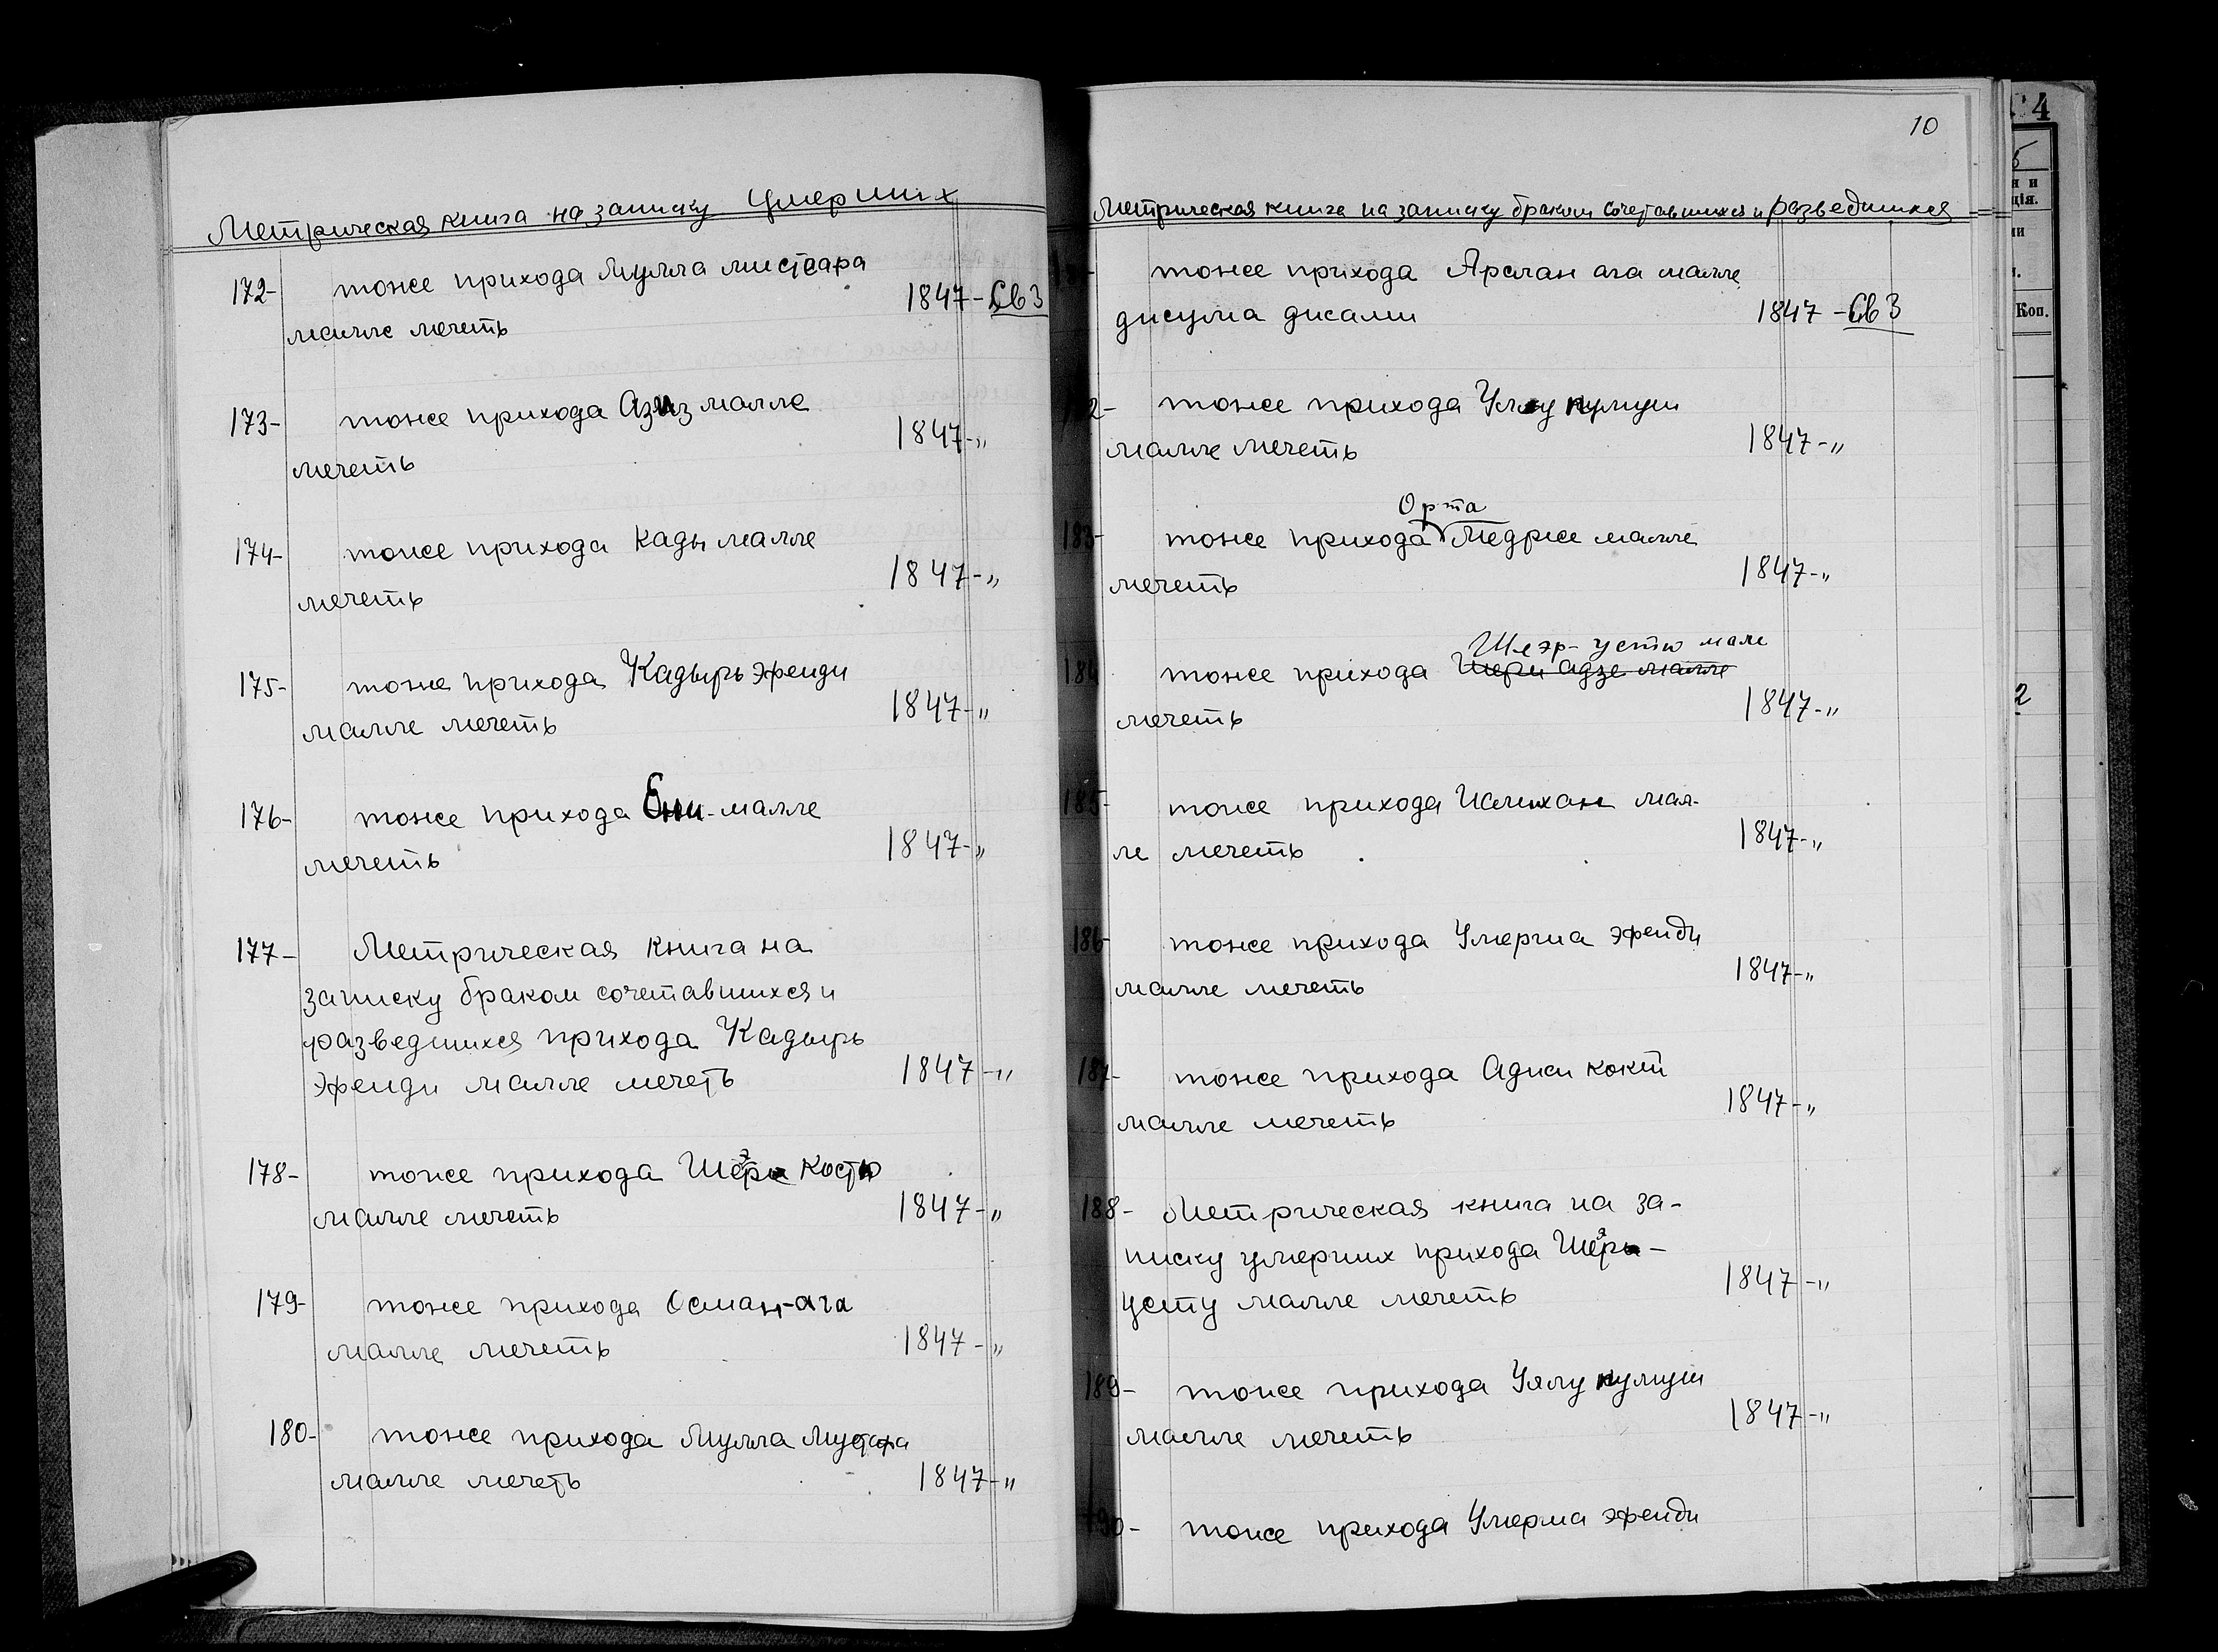 Метрическая книга на записку умерших
172- тоже прихода Мулла мистсара
малле мечеть 1847 - Св 3
173- тоже прихода Азиз малле
мечеть 1847 - "
174- тоже прихода Кады малле
мечеть 1847 - "
175- тоже прихода Кадырь эфенди
малле мечеть 1847 - "
176- тоже прихода Ени-малле
мечеть 1847 - "
177- Метрическая книга на
записку браком сочетавшихся и
разведшихся прихода Кадырь
эфенди малле мечеть 1847 - "
178- тоже прихода Косту
малле мечеть 1847 - "
179- тоже прихода Осман-ага
малле мечеть 1847 - "
180- тоже прихода Мулла Мустафа
малле мечеть 1847 - "
10
Метрическая книга на записку браком сочетавшихся и разведшихся
тоже прихода Арслан ага малле
джума джами 1847 - Св 3
тоже прихода Улу кумуш
малле мечеть 1847 - "
Орта
183- тоже прихода Медрсе малле
мечеть 1847 - "
Шеэр-устю мале
184 тоже прихода Шери адзе малле
мечеть 1847 - "
185- тоже прихода Исмихан мал-
ле мечеть 1847 - "
186- тоже прихода эфенди
малле мечеть 1847 - "
187- тоже прихода Аджи кокт
малле мечеть 1847 - "
188- Метрическая книга на за-
писку умерших прихода Шеэр-
усту малле мечеть 1847 - "
189- тоже прихода Уллу кумуш
малле мечеть 1847 - "
190- тоже прихода Умерша эфенди
4
Коп.
2